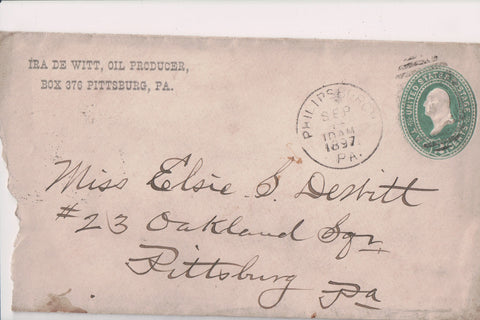 IRA DE WITT, OIL PRODUCER,
BOX 376 PITTSBURG, PA.
PHILIPSBURG
SEP
10 AM
1897
PA.
UNITED STATES
Miss Elsie S. DeWitt
#23 Oakland Sqr
Pittsburg
Pa